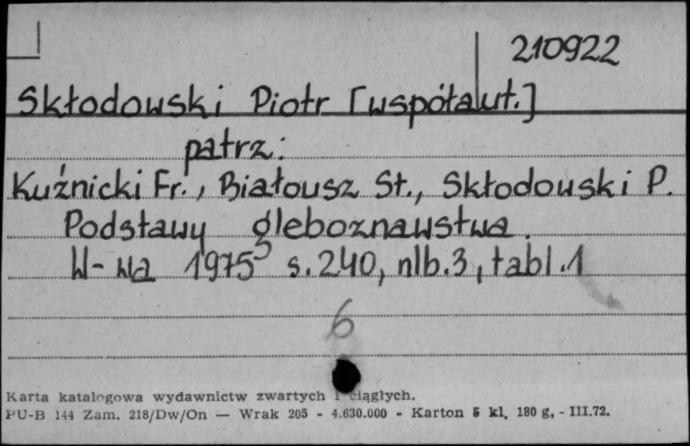 210922
Skłodowski Piotr [współaut.]
patrz:
Kuźnicki Fr., Białousz St., Skłodowski P.
Podstawy gleboznawstwa.
W-wa 1975 s. 240, nlb. 3, tabl. 1
6
Karta katalogowa wydawnictw zwartych i ciągłych.
PU-B 144 Zam. 218/Dw/On — Wrak 205 - 4.630.000 - Karton 5 kl. 180 g, - III.72.